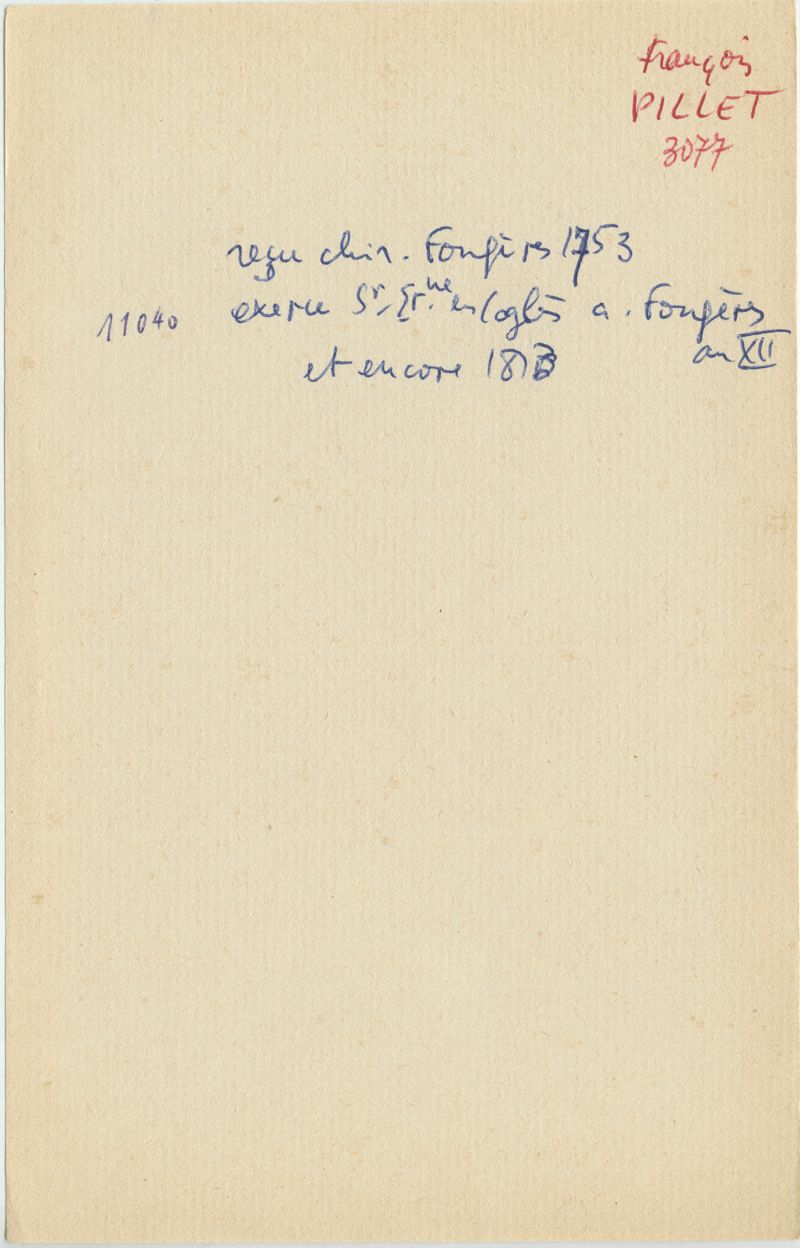 François
PILLET
3077
reçu chir. Fougères 1753
11040 exerce St-Et.ne en Coglès a. Fougères
an XII
et encore 1813